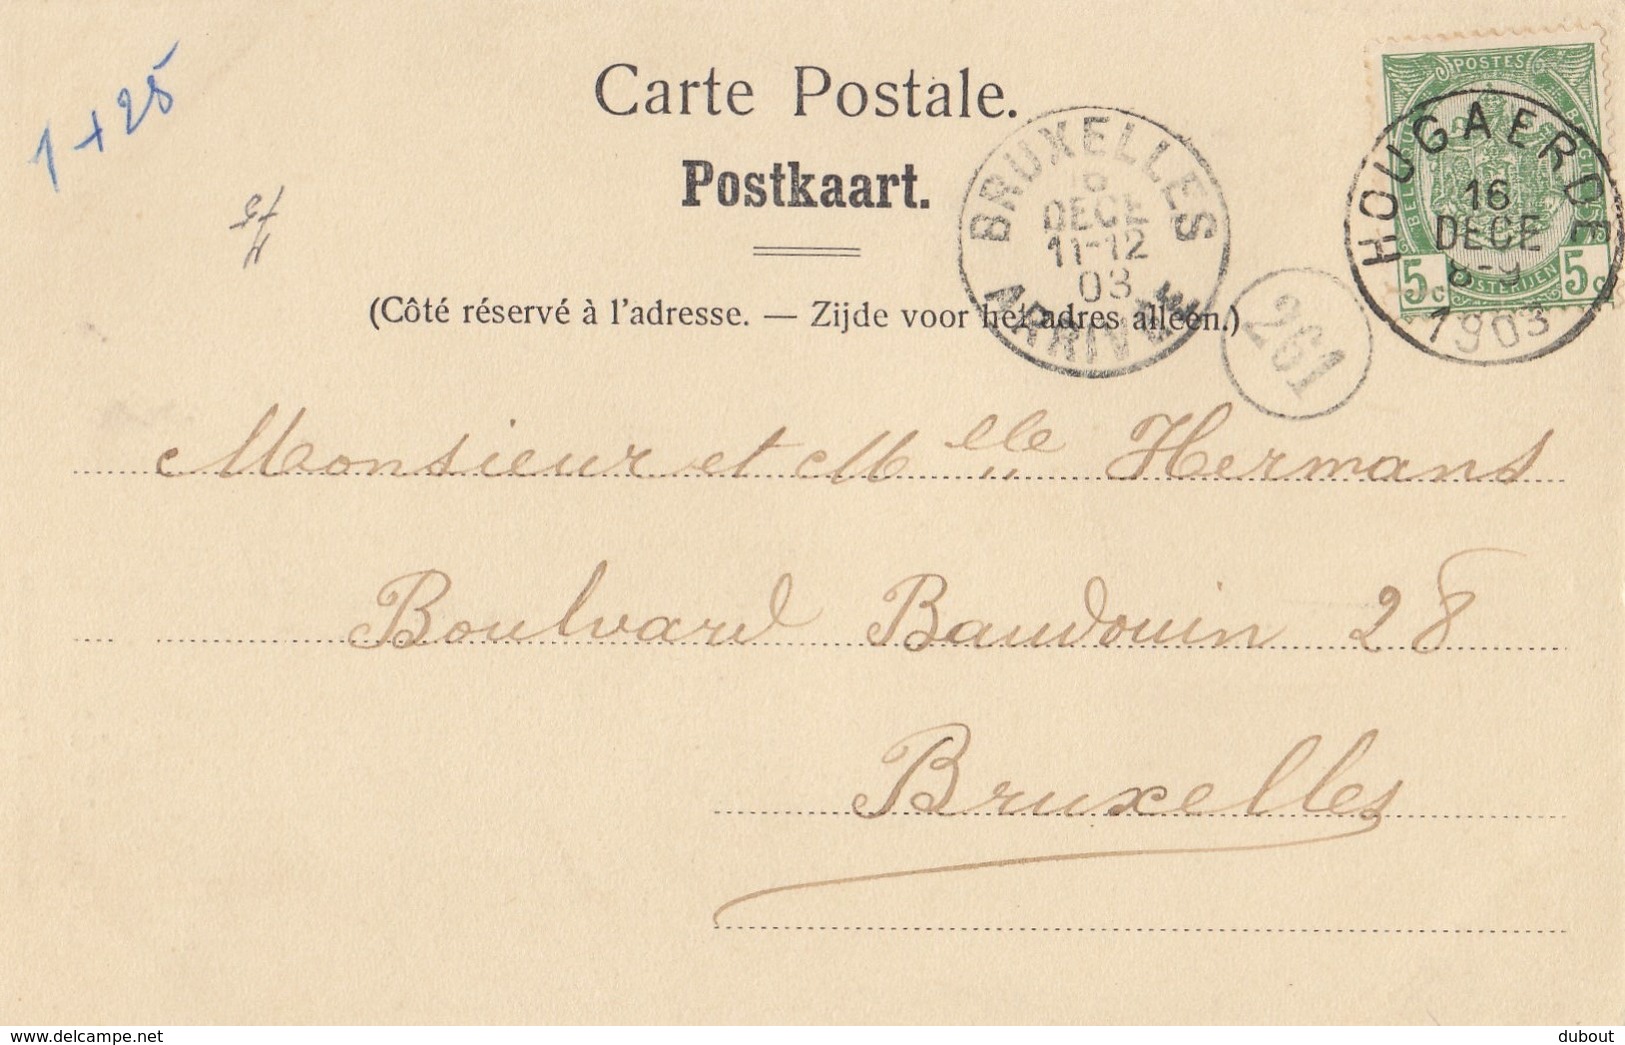 1 + 25
Carte Postale.
Postkaart.
(Côté réservé à l'adresse. — Zijde voor het adres alleen.)
BRUXELLES
16
DECE
11-12
03
ARRIVÉE
261
POSTES
BELGIQUE
BELGIE
5c
5c
POSTERIJEN
HOUGAERDE
16
DECE
8-9
1903
Monsieur et Mlle Hermans
Boulvard Baudouin 28
Bruxelles
www.delcampe.net
dubout